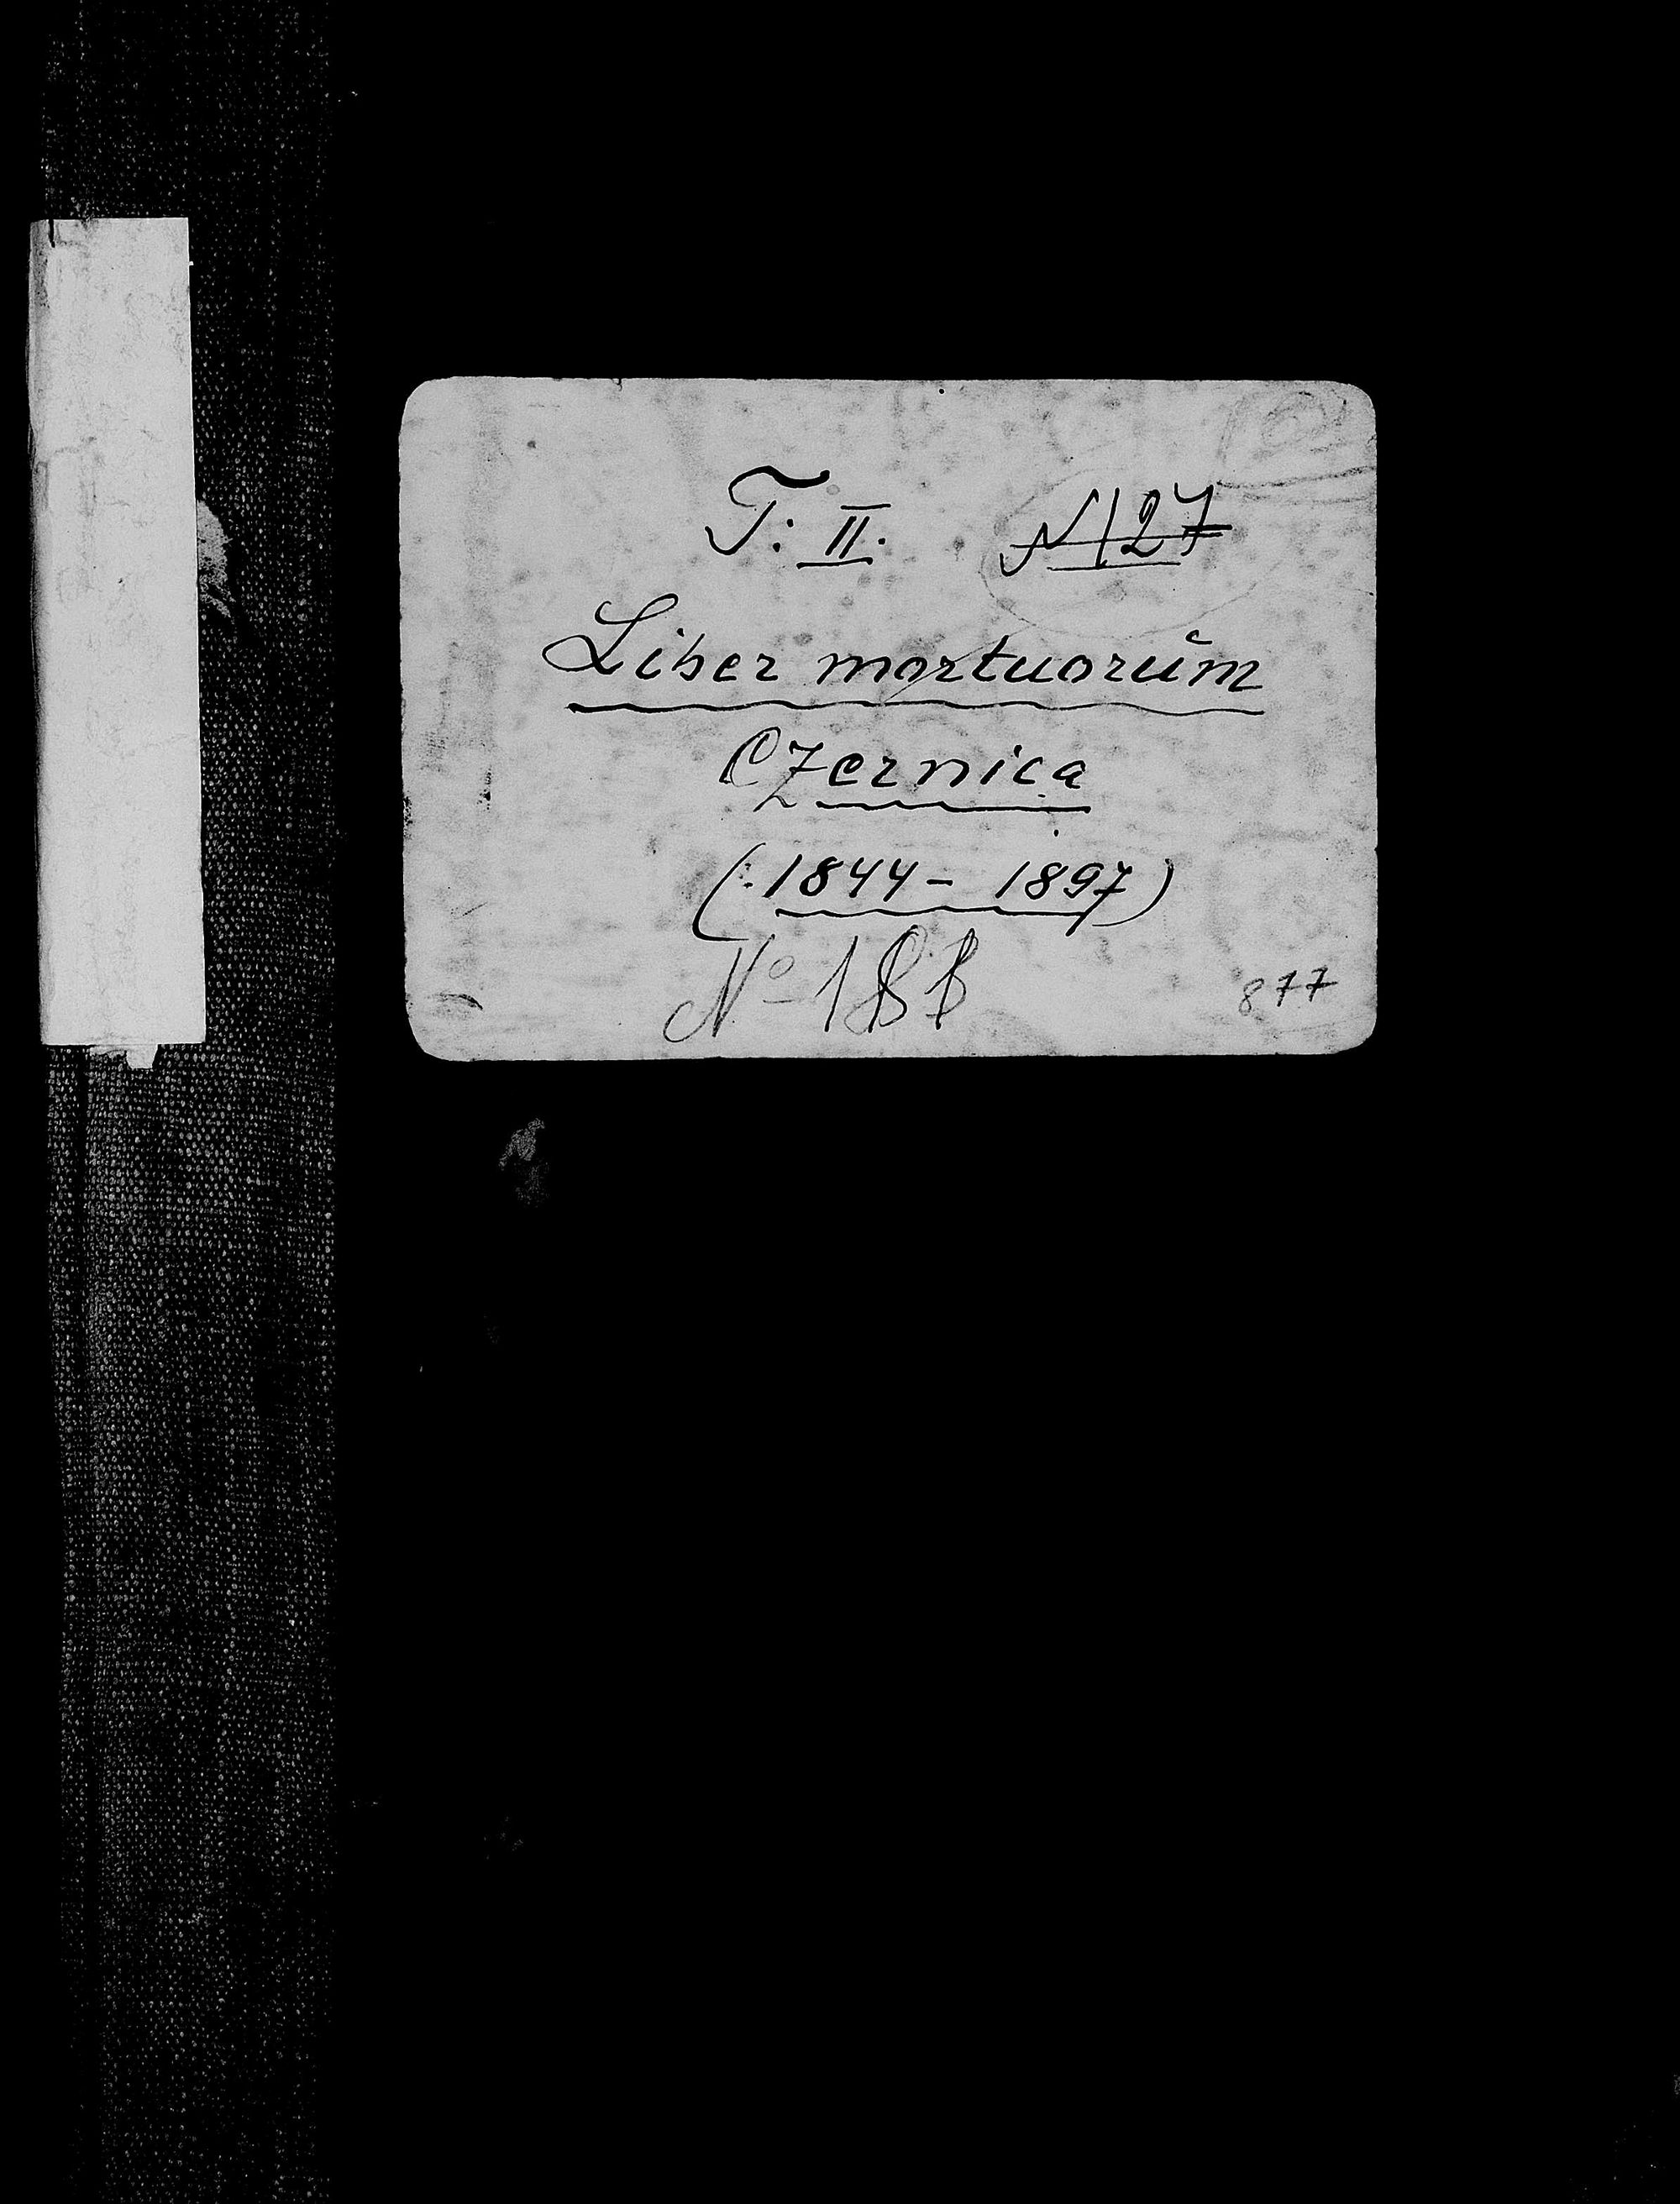 T: II. N 127
Liber mortuorŭm
Czernica
(:1844 - 1897)
Nº 188
877